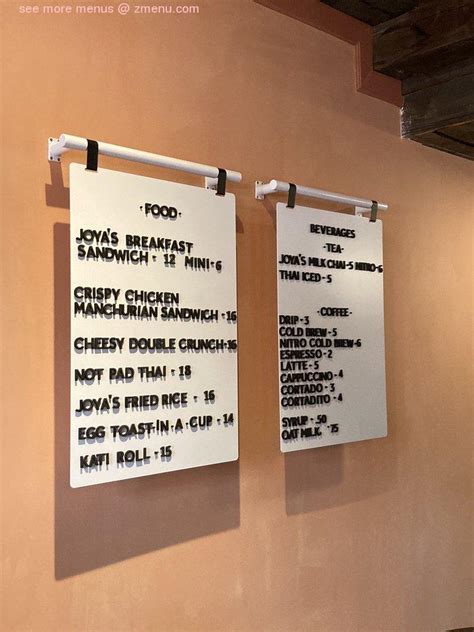 see more menus @ zmenu.com
·FOOD·
JOYA'S BREAKFAST
SANDWICH - 12 MINI-6
CRISPY CHICKEN
MANCHURIAN SANDWICH-16
CHEESY DOUBLE CRUNCH-16
NOT PAD THAI - 18
JOYA'S FRIED RICE - 16
EGG TOAST IN A CUP - 14
KATI ROLL - 15
BEVERAGES
-TEA-
JOYA'S MILK CHAI-5 NITRO-6
THAI ICED-5
·COFFEE·
DRIP-3
COLD BREW-5
NITRO COLD BREW-6
ESPRESSO-2
LATTE-5
CAPPUCCINO-4
CORTADO-3
CORTADITO-4
SYRUP-.50
OAT MILK .75